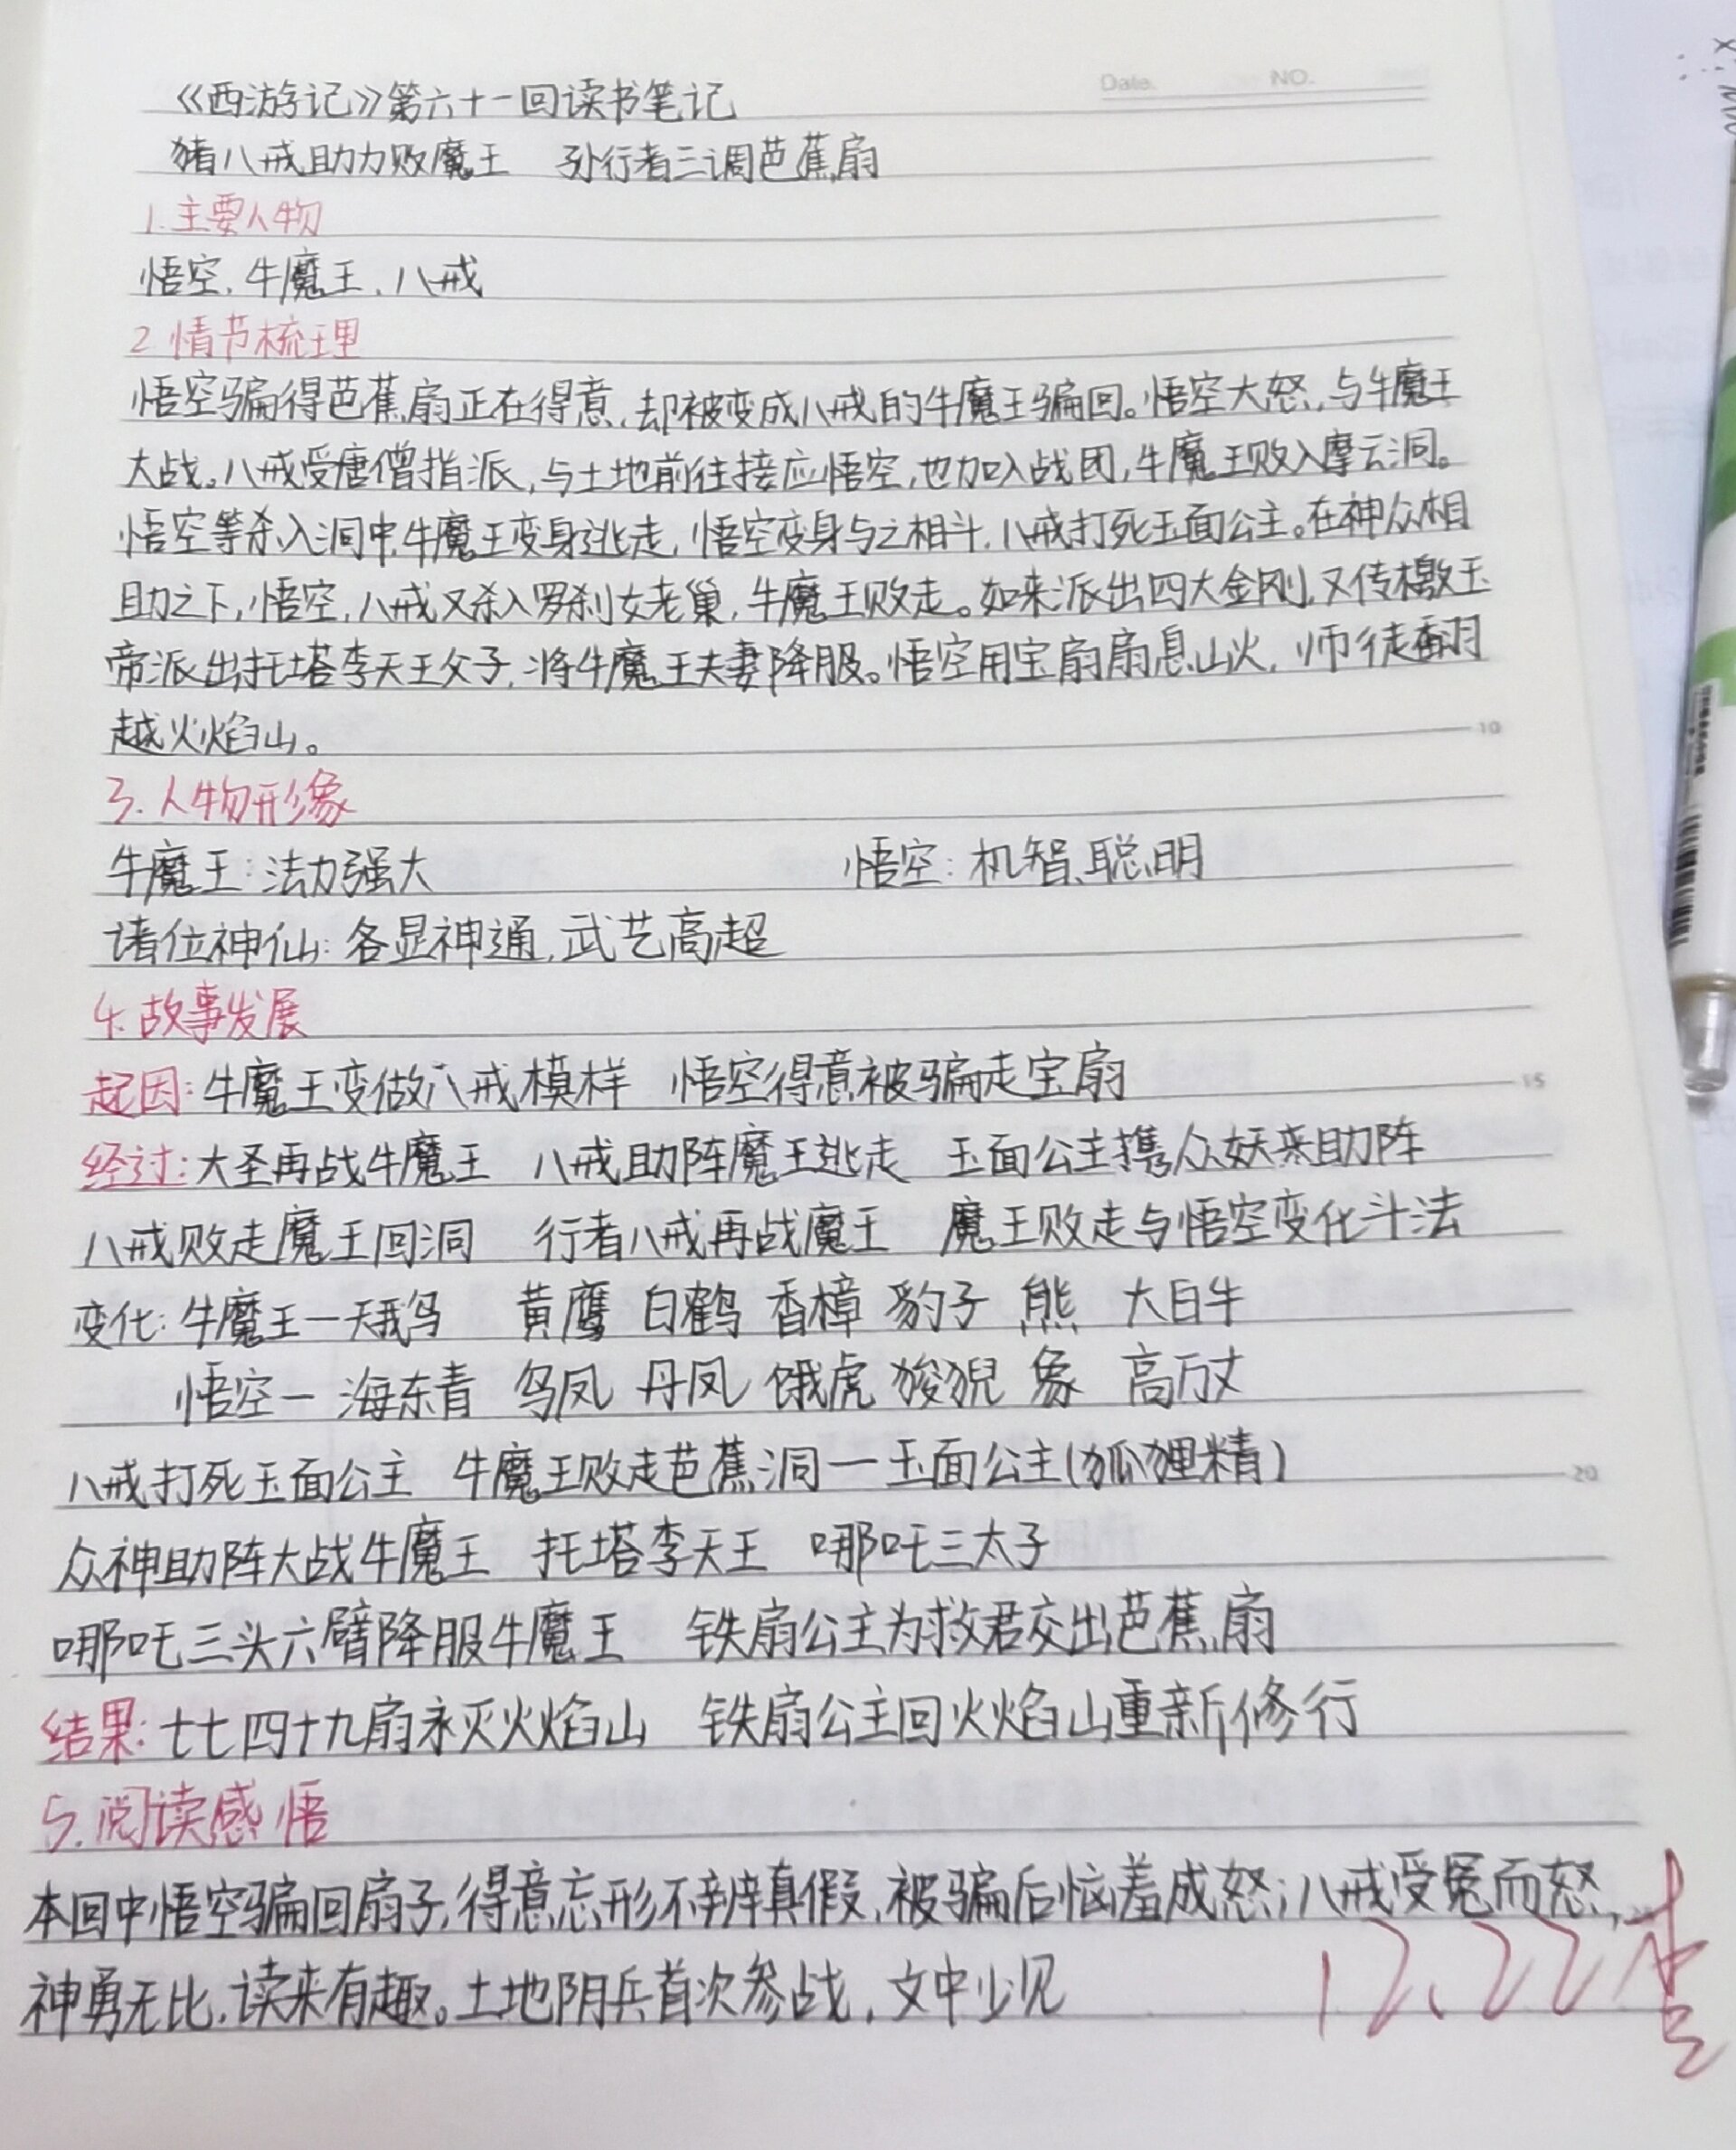 Date. NO.
《西游记》第六十一回读书笔记
猪八戒助力败魔王 孙行者三调芭蕉扇
1.主要人物
悟空、牛魔王、八戒
2.情节梳理
悟空骗得芭蕉扇正在得意,却被变成八戒的牛魔王骗回。悟空大怒,与牛魔王
大战。八戒受唐僧指派,与土地前往接应悟空,也加入战团,牛魔王败入摩云洞。
悟空等杀入洞中,牛魔王变身逃走,悟空变身与之相斗,八戒打死玉面公主。在神众相
助之下,悟空,八戒又杀入罗刹女老巢,牛魔王败走。如来派出四大金刚,又传檄玉
帝派出托塔李天王父子,将牛魔王夫妻降服。悟空用宝扇扇息山火,师徒翻
越火焰山。
10
3.人物形象
牛魔王:法力强大 悟空:机智、聪明
诸位神仙:各显神通,武艺高超
4.故事发展
起因:牛魔王变做八戒模样 悟空得意被骗走宝扇
15
经过:大圣再战牛魔王 八戒助阵魔王逃走 玉面公主携众妖来助阵
八戒败走魔王回洞 行者八戒再战魔王 魔王败走与悟空变化斗法
变化:牛魔王—天鹅 黄鹰 白鹤 香樟 豹子 熊 大白牛
悟空— 海东青 乌凤 丹凤 饿虎 狻猊 象 高万丈
八戒打死玉面公主 牛魔王败走芭蕉洞—玉面公主(狐狸精)
20
众神助阵大战牛魔王 托塔李天王 哪吒三太子
哪吒三头六臂降服牛魔王 铁扇公主为救君交出芭蕉扇
结果:七七四十九扇永灭火焰山 铁扇公主回火焰山重新修行
5.阅读感悟
本回中悟空骗回扇子,得意忘形不辨真假,被骗后恼羞成怒;八戒受冤而怒,
神勇无比,读来有趣。土地阴兵首次参战,文中少见
12.22